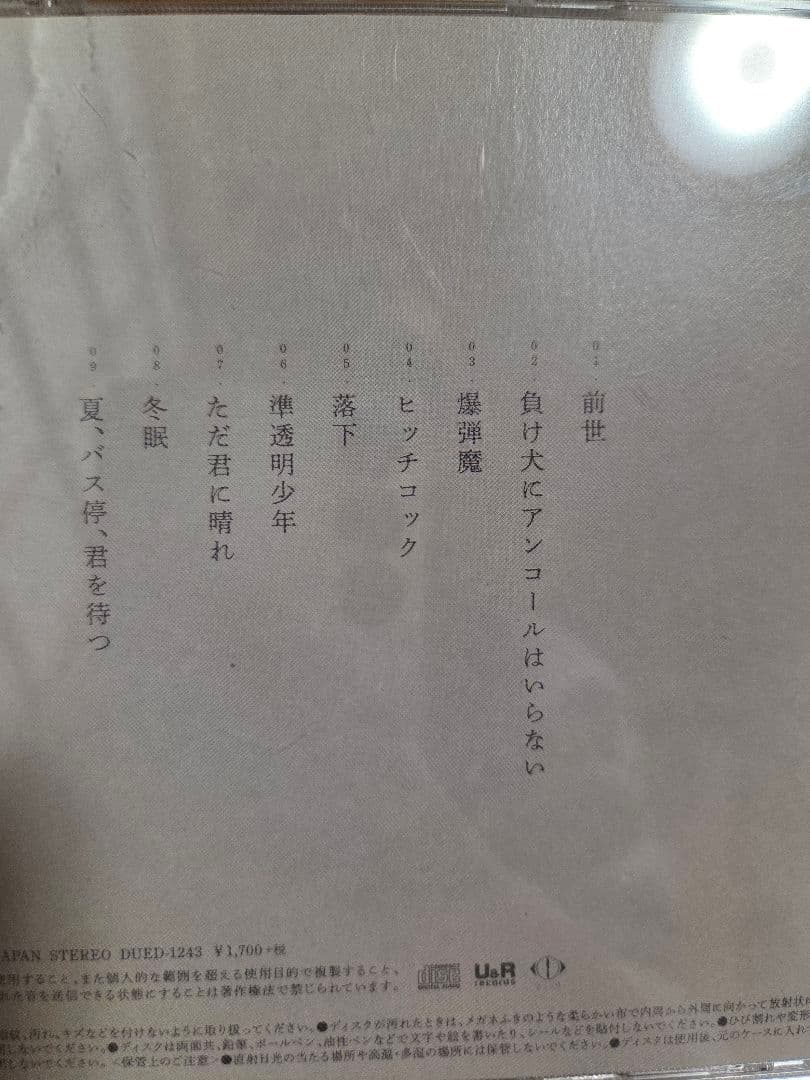 01. 前世
02. 負け犬にアンコールはいらない
03. 爆弾魔
04. ヒッチコック
05. 落下
06. 準透明少年
07. ただ君に晴れ
08. 冬眠
09. 夏、バス停、君を待つ
APAN STEREO DUED-1243 ¥1,700+税
使用すること、また個人的な範囲を超える使用目的で複製すること、
れた音を送信できる状態にすることは著作権法で禁じられています。
disc
U&R
records
指紋、汚れ、キズなどを付けないように取り扱ってください。●ディスクが汚れたときは、メガネふきのような柔らかい布で内周から外周に向かって放射状
用しないでください。●ディスクは両面共、鉛筆、ボールペン、油性ペンなどで文字や絵を書いたり、シールなどを貼付しないでください。●ひび割れや変形
用しないでください。<保管上のご注意>●直射日光の当たる場所や高温・多湿の場所には保管しないでください。●ディスクは使用後、元のケースに入れ